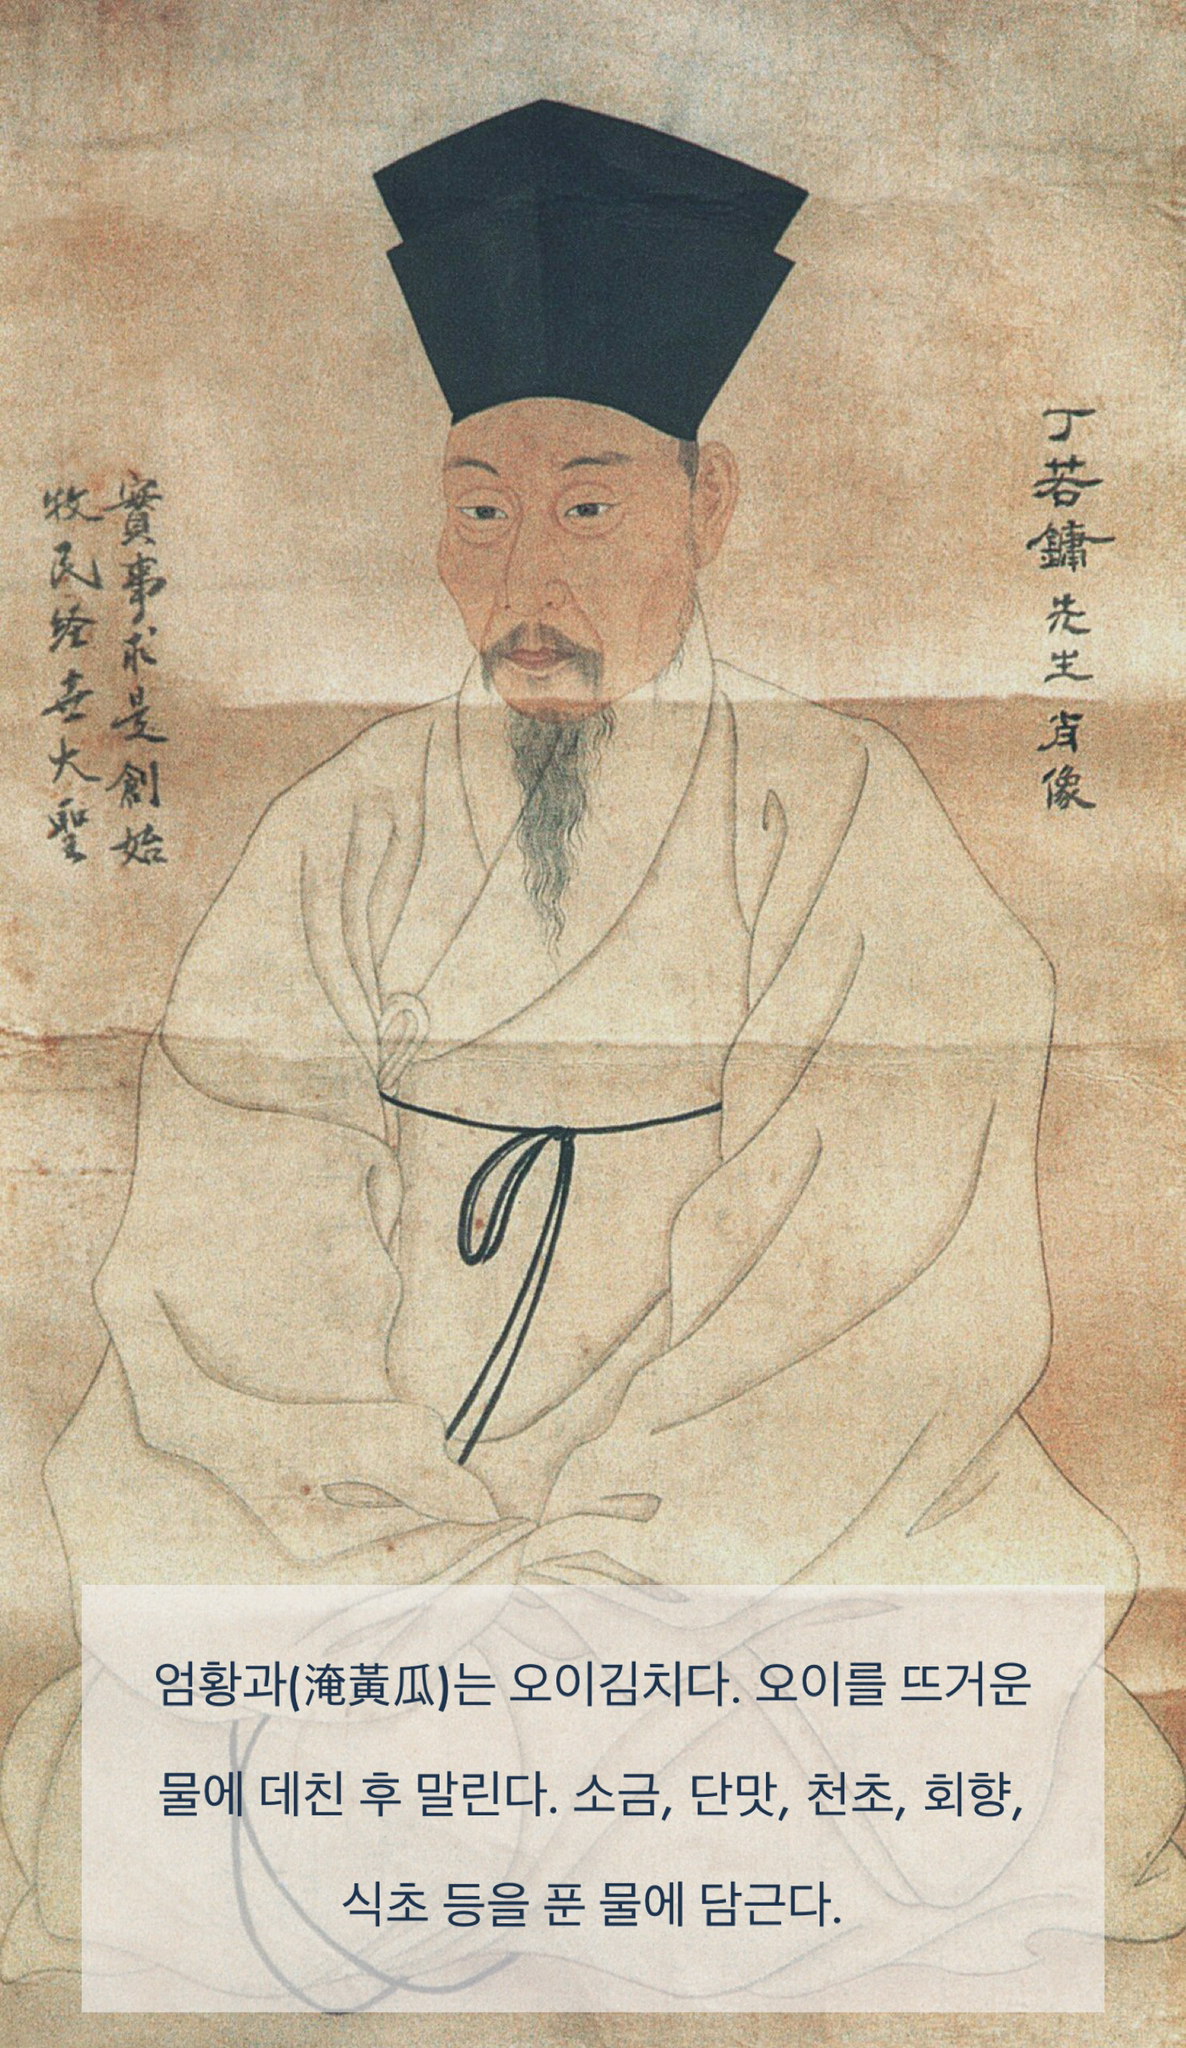 丁若鏞先生肖像
實事求是創始
牧民経世大聖
엄황과(淹黃瓜)는 오이김치다. 오이를 뜨거운
물에 데친 후 말린다. 소금, 단맛, 천초, 회향,
식초 등을 푼 물에 담근다.